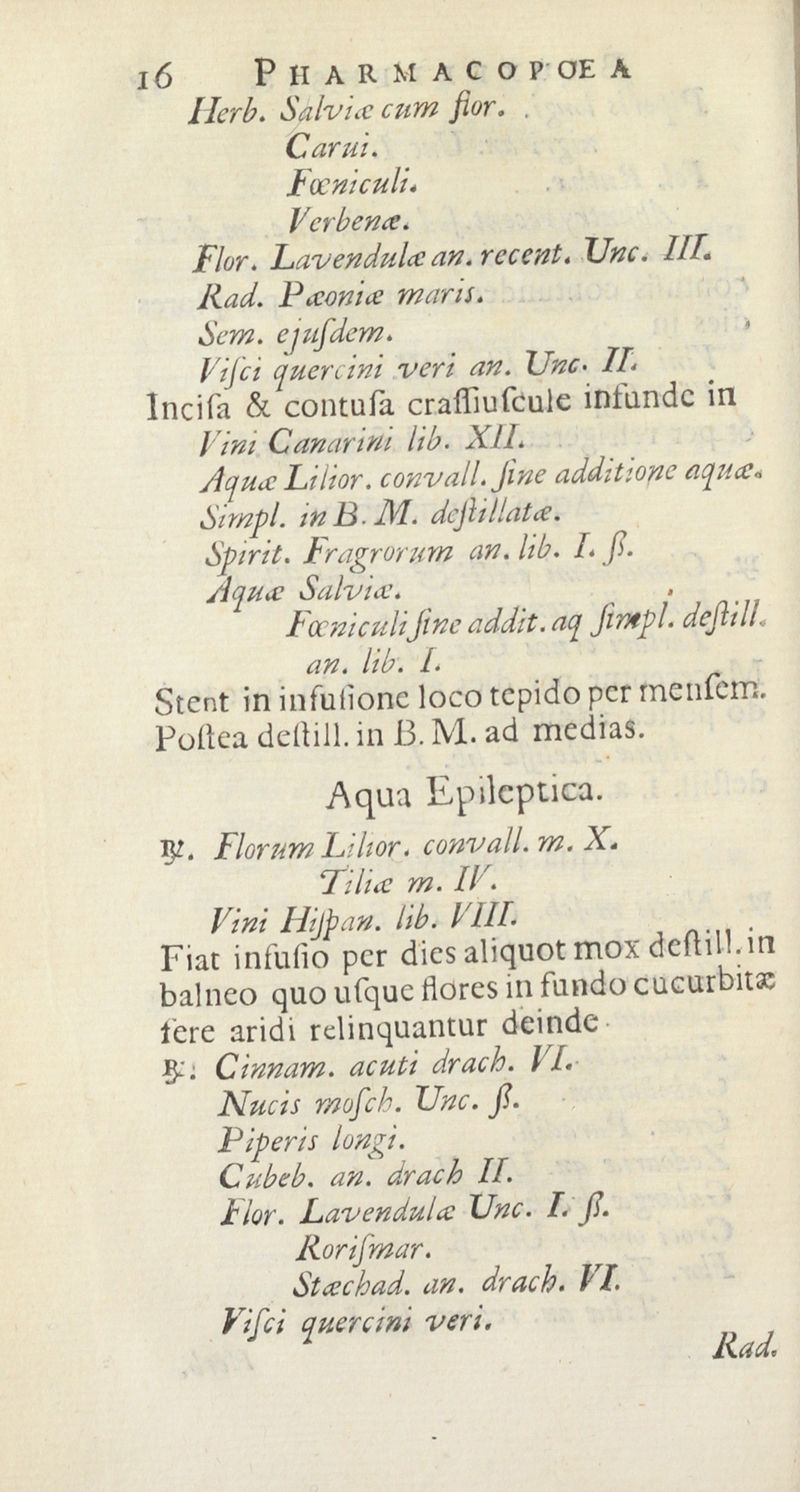 16 PHARMACOPOEA
Herb. Salviæ cum flor.
Carui.
Fœniculi.
Verbenæ.
Flor. Lavendulæ an. recent. Unc. III.
Rad. Pæoniæ maris.
Sem. ejuſdem.
Viſci quercini veri an. Unc. II.
Inciſa & contuſa craſſiuſcule infunde in
Vini Canarini lib. XII.
Aquæ Lilior. convall. ſine additione aquæ.
Simpl. in B. M. deſtillatæ.
Spirit. Fragrorum an. lib. I. ß.
Aquæ Salviæ.
Fœniculi ſine addit. aq ſimpl. deſtill.
an. lib. I.
Stent in infuſione loco tepido per menſem.
Poſtea deſtill. in B. M. ad medias.
Aqua Epileptica.
℞. Florum Lilior. convall. m. X.
Tiliæ m. IV.
Vini Hiſpan. lib. VIII.
Fiat infuſio per dies aliquot mox deſtill. in
balneo quo uſque flores in fundo cucurbitæ
fere aridi relinquantur deinde
℞. Cinnam. acuti drach. VI.
Nucis moſch. Unc. ß.
Piperis longi.
Cubeb. an. drach II.
Flor. Lavendulæ Unc. I. ß.
Roriſmar.
Stæchad. an. drach. VI.
Viſci quercini veri.
Rad.